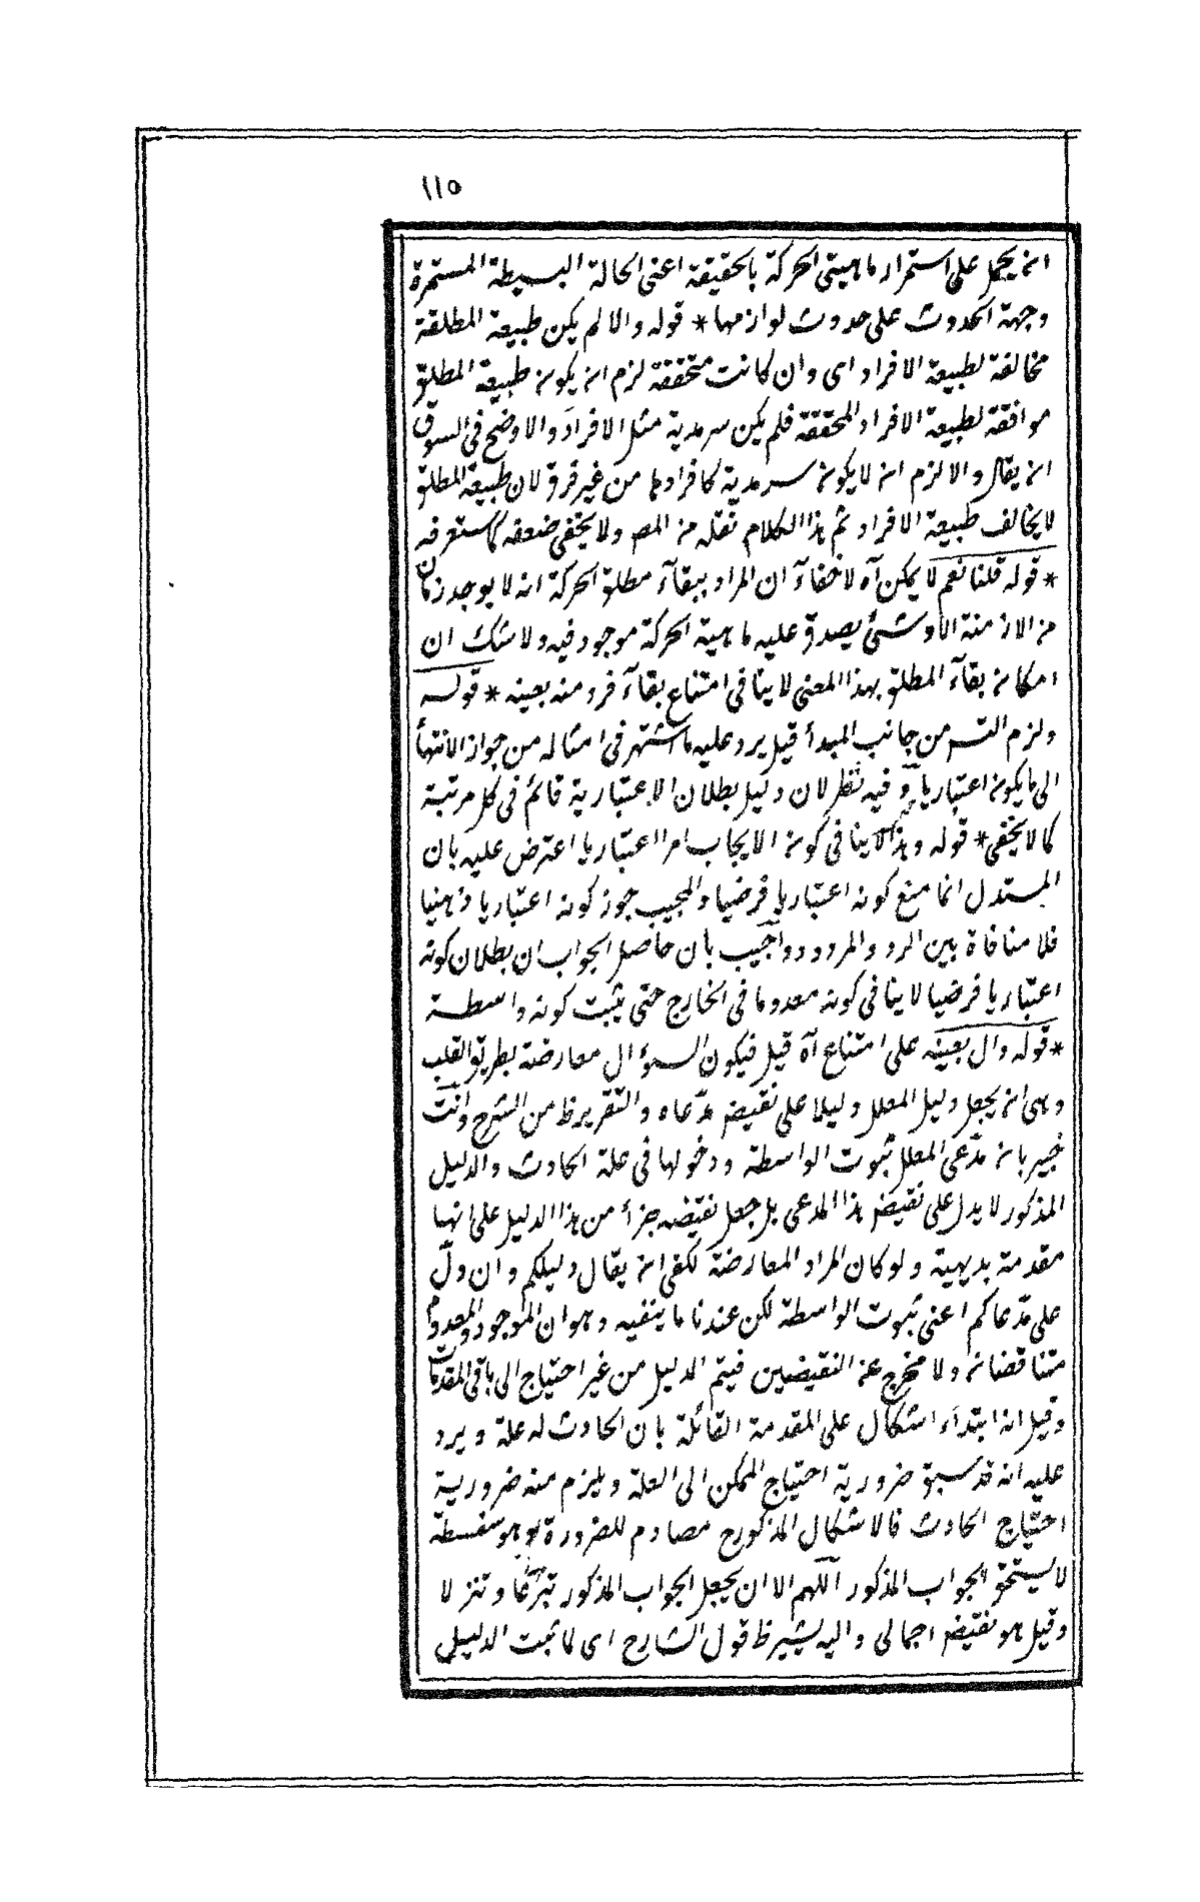 ١١٥
ان يحمل على استمرار ماهيتى الحركة بالحقيقة اعنى الحالة البسيطة المستمرة
وجهة الحدوث على حدوث لوازمها * قوله والا لم يكن طبيعة المطلقة
مخالفة لطبيعة الافراد اى وان كانت متحققة لزم ان يكون طبيعة المطلق
موافقة لطبيعة الافراد المحققة فلم يكن سرمدية مثل الافراد والاوضح فى السوق
ان يقال والا لزم ان لا يكون سرمدية كافرادها من غير فرق لان طبيعة المطلق
لا يخالف طبيعة الافراد ثم هذا الكلام نقله من المص ولا يخفى ضعفه كما ستعرفه
* قوله قلنا نعم لا يمكن آه لا خفاء آن المراد ببقاء مطلق الحركة انه لا يوجد زمان
من الازمنة الا وشئ يصدق عليه ماهية الحركة موجود فيه ولا شك ان
امكان بقاء المطلق بهذا المعنى لا ينافى امتناع بقاء فرد منه بعينه * قوله
ولزم التس من جانب المبدأ قيل يرد عليه ما اشتهر فى امثاله من جواز الانتهاء
الى ما يكون اعتباريا وفيه نظر لان دليل بطلان الاعتبارية قائم فى كل مرتبة
كما لا يخفى * قوله وهذا لا ينافى كون الايجاب امرا اعتباريا اعترض عليه بان
المستدل انما منع كونه اعتباريا فرضيا والمجيب جوز كونه اعتباريا ذهنيا
فلا منافاة بين الرد والمردود واجيب بان حاصل الجواب ان بطلان كونه
اعتباريا فرضيا لا ينافى كونه معدوما فى الخارج حتى يثبت كونه واسطة
* قوله دال بعينه على امتناع آه قيل فيكون السؤال معارضة بطريق القلب
وهى ان يجعل دليل المعلل دليلا على نقيض مدّعاه والتقرير ظ من الشرح وانت
خبير بان مدّعى المعلل ثبوت الواسطة ودخولها فى علة الحادث والدليل
المذكور لا يدل على نقيض هذا المدعى بل جعل نقيضه جزأ من هذا الدليل على انها
مقدمة بديهية ولو كان المراد المعارضة لكفى ان يقال دليلكم وان دلّ
على مدّعاكم اعنى ثبوت الواسطة لكن عندنا ما ينفيه وهو ان الموجود والمعدوم
متناقضان ولا مخرج عن النقيضين فيتم الدليل من غير احتياج الى باقى المقدمات
وقيل انه ابتداء اشكال على المقدمة القائلة بان الحادث له علة ويرد
عليه انه قد سبق ضرورية احتياج الممكن الى العلة ويلزم منه ضرورية
احتياج الحادث فالاشكال المذكور ح مصادم للضرورة وهو سفسطة
لا يستحق الجواب المذكور اللهم الا ان يجعل الجواب المذكور تبرعا وتنزلا
وقيل هو نقيض اجمالى واليه يشير ظ قول الشارح اى لما ثبت الدليل